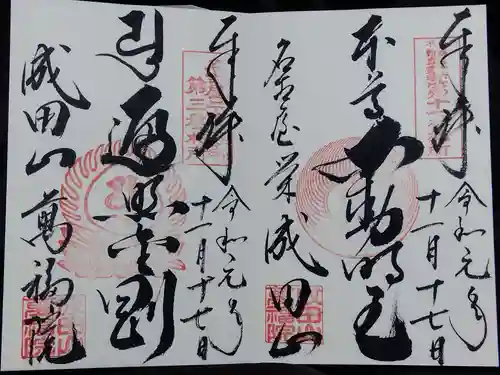 奉拝
令和元年
十一月十七日
本尊不動明王
名古屋栄
成田山
奉拝
令和元年
十一月十七日
遍照金剛
成田山萬福院